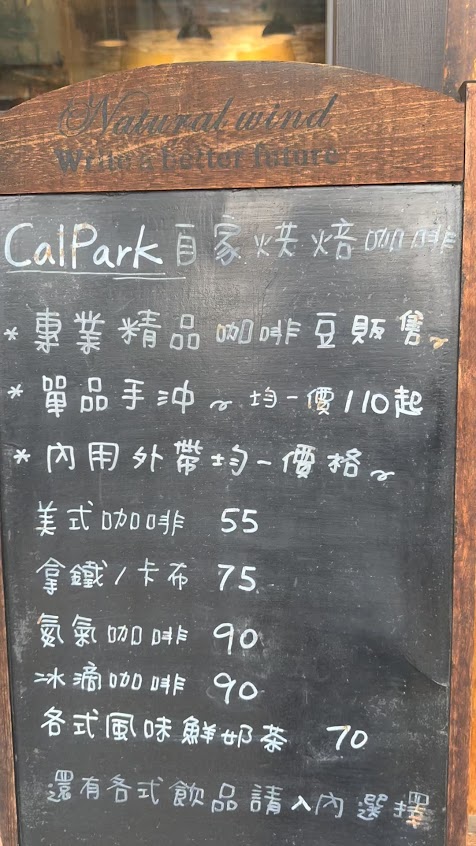 Natural wind
Write a better future
CalPark 自家烘焙咖啡
* 專業精品咖啡豆販售~
* 單品手沖~ 均一價110起
* 內用外帶均一價格~
美式咖啡 55
拿鐵/卡布 75
氮氣咖啡 90
冰滴咖啡 90
各式風味鮮奶茶 70
還有各式飲品請入內選擇